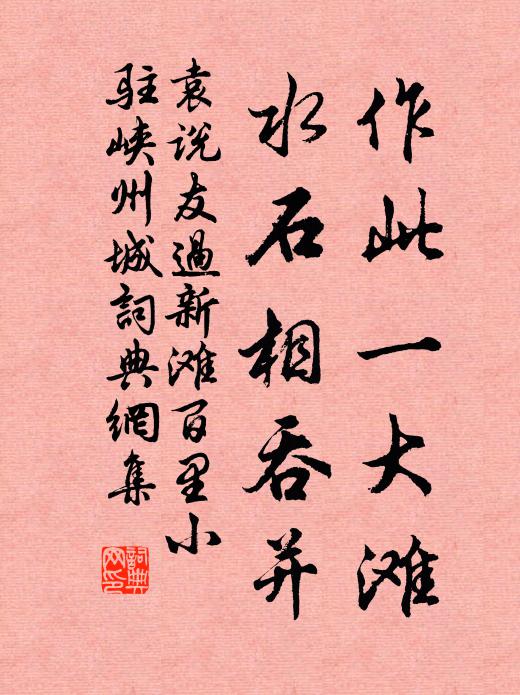 作此一大滩
水石相吞并
袁说友過新滩百里小
驻峡州城詞典網集
詞典网印